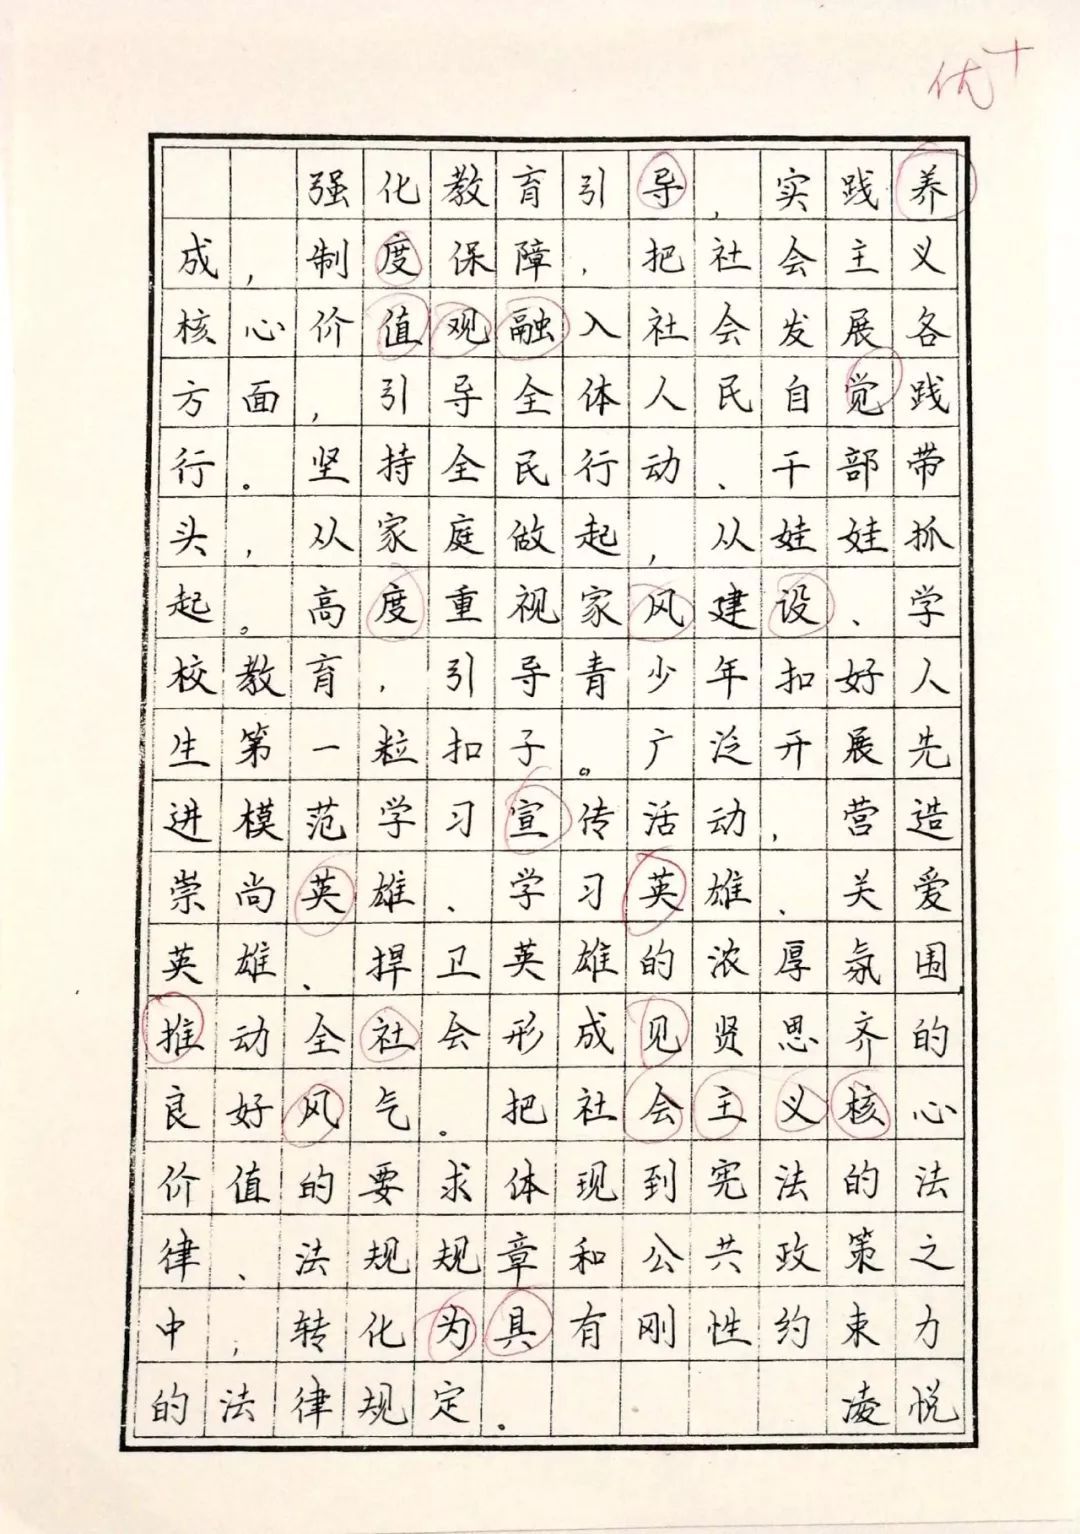 优+
强化教育引导,实践养
成,制度保障,把社会主义
核心价值观融入社会发展各
方面,引导全体人民自觉践
行。坚持全民行动、干部带
头,从家庭做起,从娃娃抓
起。高度重视家风建设、学
校教育,引导青少年扣好人
生第一粒扣子。广泛开展先
进模范学习宣传活动,营造
崇尚英雄、学习英雄、关爱
英雄、捍卫英雄的浓厚氛围.
推动全社会形成见贤思齐的
良好风气。把社会主义核心
价值的要求体现到宪法的法
律、法规规章和公共政策之
中,转化为具有刚性约束力
的法律规定。 凌悦